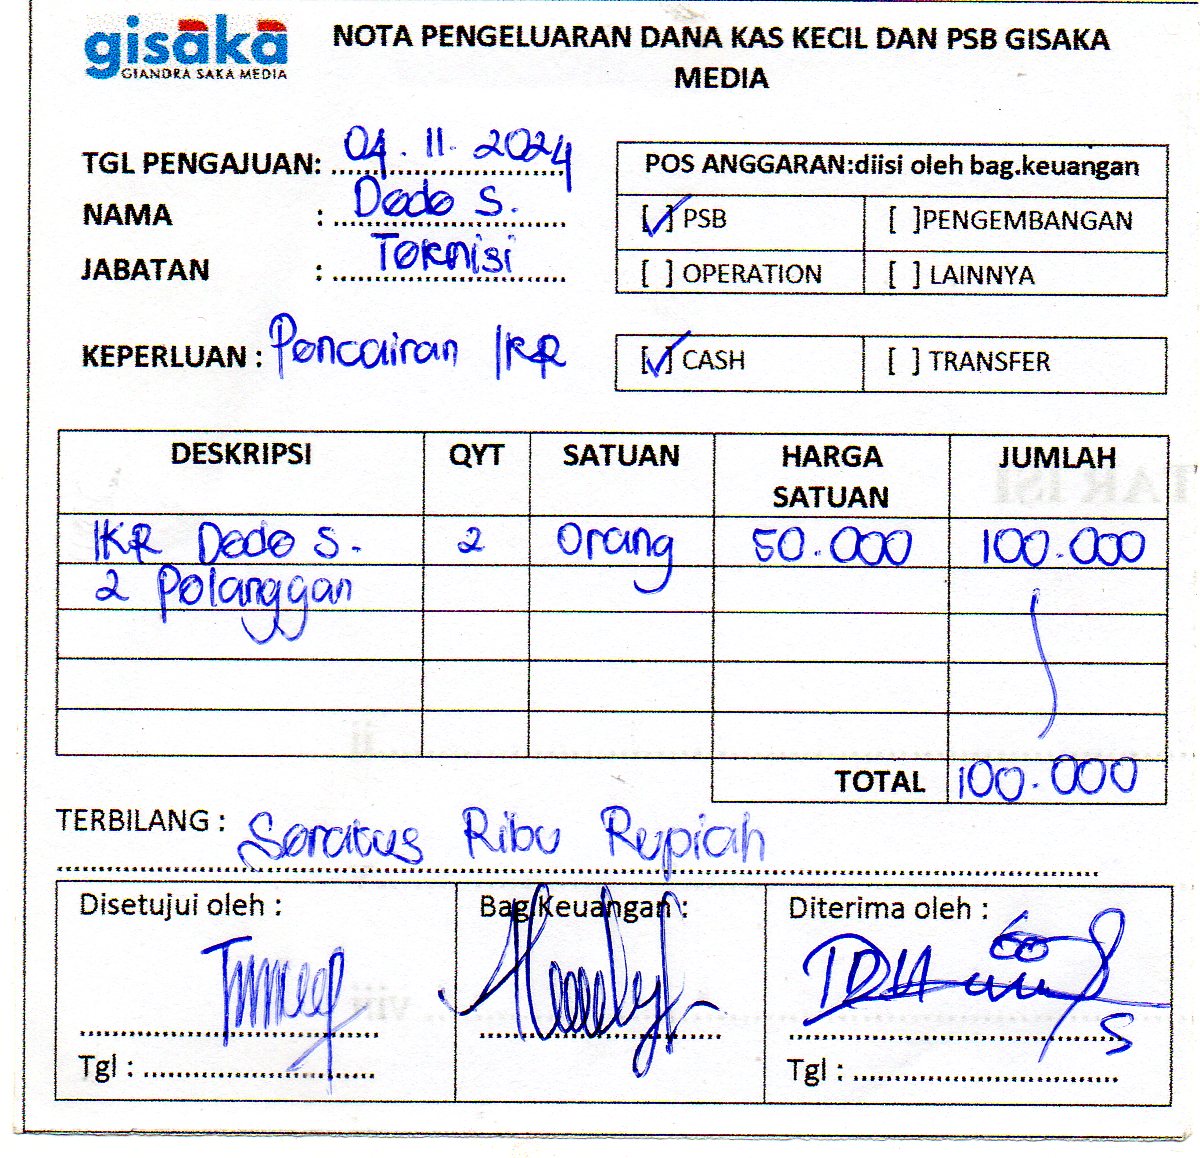 gisaka
GIANDRA SAKA MEDIA
NOTA PENGELUARAN DANA KAS KECIL DAN PSB GISAKA
MEDIA
TGL PENGAJUAN: 04.11.2024
NAMA : Dedo S.
JABATAN : Teknisi
POS ANGGARAN:diisi oleh bag.keuangan
[✓] PSB [ ]PENGEMBANGAN
[ ] OPERATION [ ] LAINNYA
KEPERLUAN : Pencairan IKR
[✓] CASH [ ] TRANSFER
DESKRIPSI QYT SATUAN HARGA SATUAN JUMLAH
IKR Dedo S. 2 Orang 50.000 100.000
2 Pelanggan
TOTAL 100.000
TERBILANG : Seratus Ribu Rupiah
Disetujui oleh : Bag.Keuangan : Diterima oleh :
Tgl : Tgl :